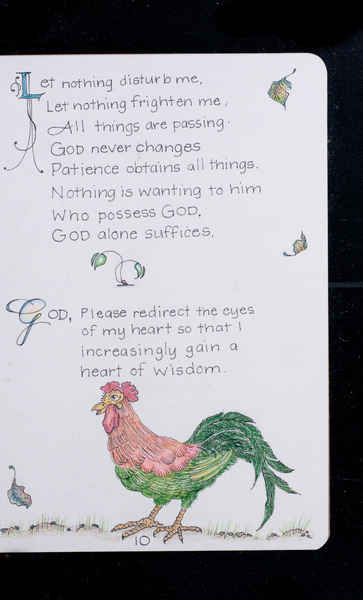 Let nothing disturb me,
Let nothing frighten me,
All things are passing.
GOD never changes
Patience obtains all things.
Nothing is wanting to him
Who possess GOD,
GOD alone suffices.
GOD, Please redirect the eyes
of my heart so that I
increasingly gain a
heart of wisdom.
10